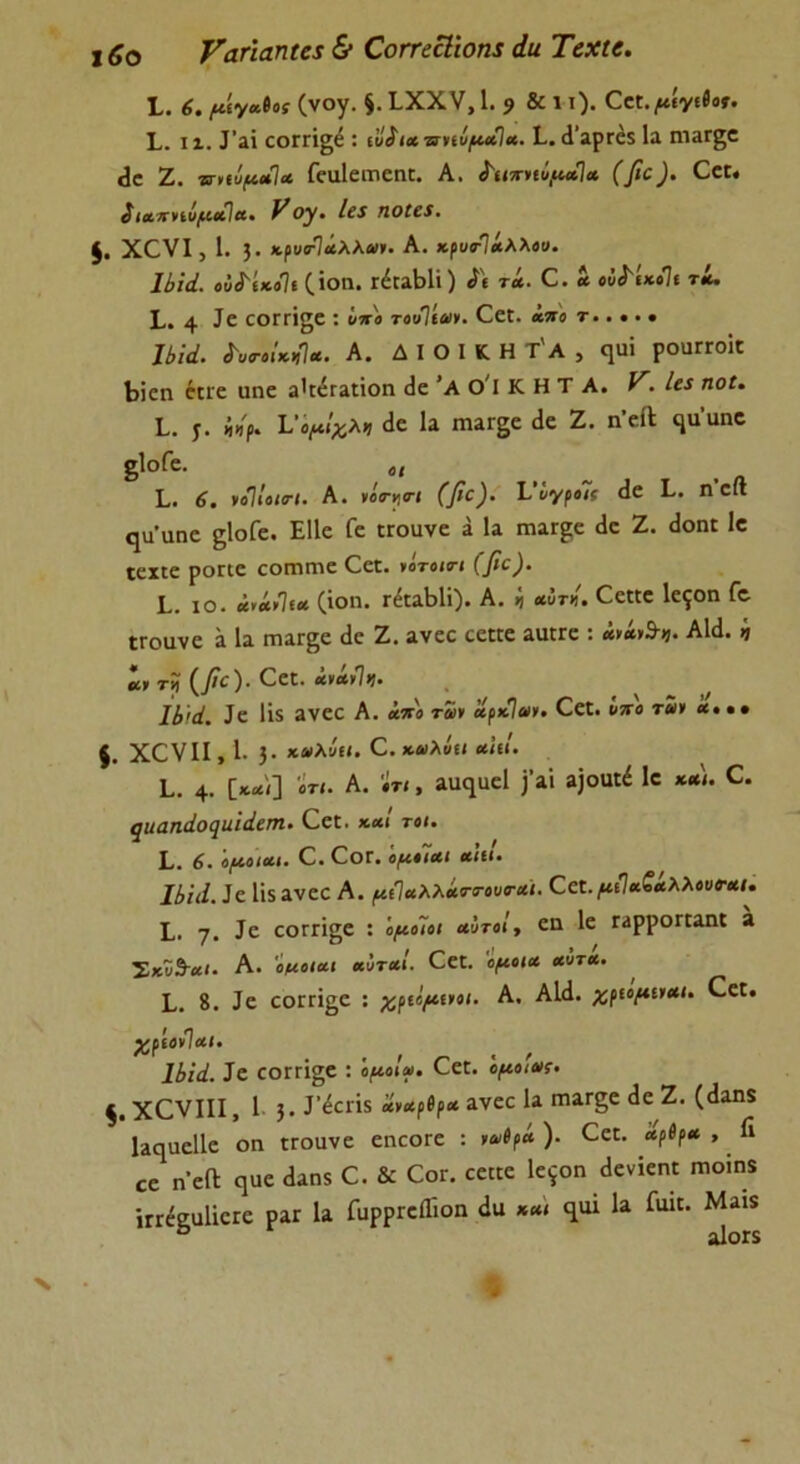 160 Variantes & Corrections du Texte.
L. 6. μέγαθος (voy. §. LXXV, l. 9 & 11). Cet. μέγεθος.
L. 12. J'ai corrigé : εὔδια πνεύμαlα. L. d'après la marge
de Z. πνεύμαlα ſeulement. A. δειπνεύμαlα (ſic). Cet.
διαπνεύμαlα. Voy. les notes.
§. XCVI, l. 3. κρυσlάλλων. A. κρυσlάλλου.
Ibid. οὐδέκοlε (ion. rétabli) δὲ τὰ. C. ἃ οὐδέκοlε τὰ.
L. 4 Je corrige : ὑπὸ τουlέων. Cet. ἀπὸ τ.....
Ibid. δυσοίκηlα. A. ΔΙΟΙΚΗΤ'Α, qui pourroit
bien être une altération de 'ΑΟ'ΙΚΗΤΑ. V. les not.
L. 5. ἠήρ. L'ὀμίχλη de la marge de Z. n'eſt qu'une
gloſe.
οι
L. 6. νοlίοισι. A. νόσησι (ſic). L'ὑγροῖς de L. n'eſt
qu'une gloſe. Elle ſe trouve à la marge de Z. dont le
texte porte comme Cet. νότοισι (ſic).
L. 10. ἀνάνlεα (ion. rétabli). A. ἡ αὐτή. Cette leçon ſe
trouve à la marge de Z. avec cette autre : ἀνάνθη. Ald. ἢ
ἂν τῇ (ſic). Cet. ἀνάνlη.
Ibid. Je lis avec A. ἀπὸ τῶν ἄρκlων. Cet. ὑπὸ τῶν ἄ...
§. XCVII, l. 3. κωλύει. C. κωλύει αἰεί.
L. 4. [καὶ] ὅτι. A. ὅτι, auquel j'ai ajouté le καὶ. C.
quandoquidem. Cet. καί τοι.
L. 6. ὅμοιαι. C. Cor. ὁμοῖαι αἰεί.
Ibid. Je lis avec A. μεlαλλάσσουσαι. Cet. μεlαβάλλουσαι.
L. 7. Je corrige : ὁμοῖοι αὐτοί, en le rapportant à
Σκύθαι. A. ὅμοιαι αὐταί. Cet. ὅμοια αὐτά.
L. 8. Je corrige : χρεόμενοι. A. Ald. χρεόμεναι. Cet.
χρέονlαι.
Ibid. Je corrige : ὁμοίῳ. Cet. ὁμοίως.
§. XCVIII, l. 3. J'écris ἄναρθρα avec la marge de Z. (dans
laquelle on trouve encore : νωθρά). Cet. ἄρθρα, ſi
ce n'eſt que dans C. & Cor. cette leçon devient moins
irréguliere par la ſuppreſſion du καὶ qui la ſuit. Mais
alors